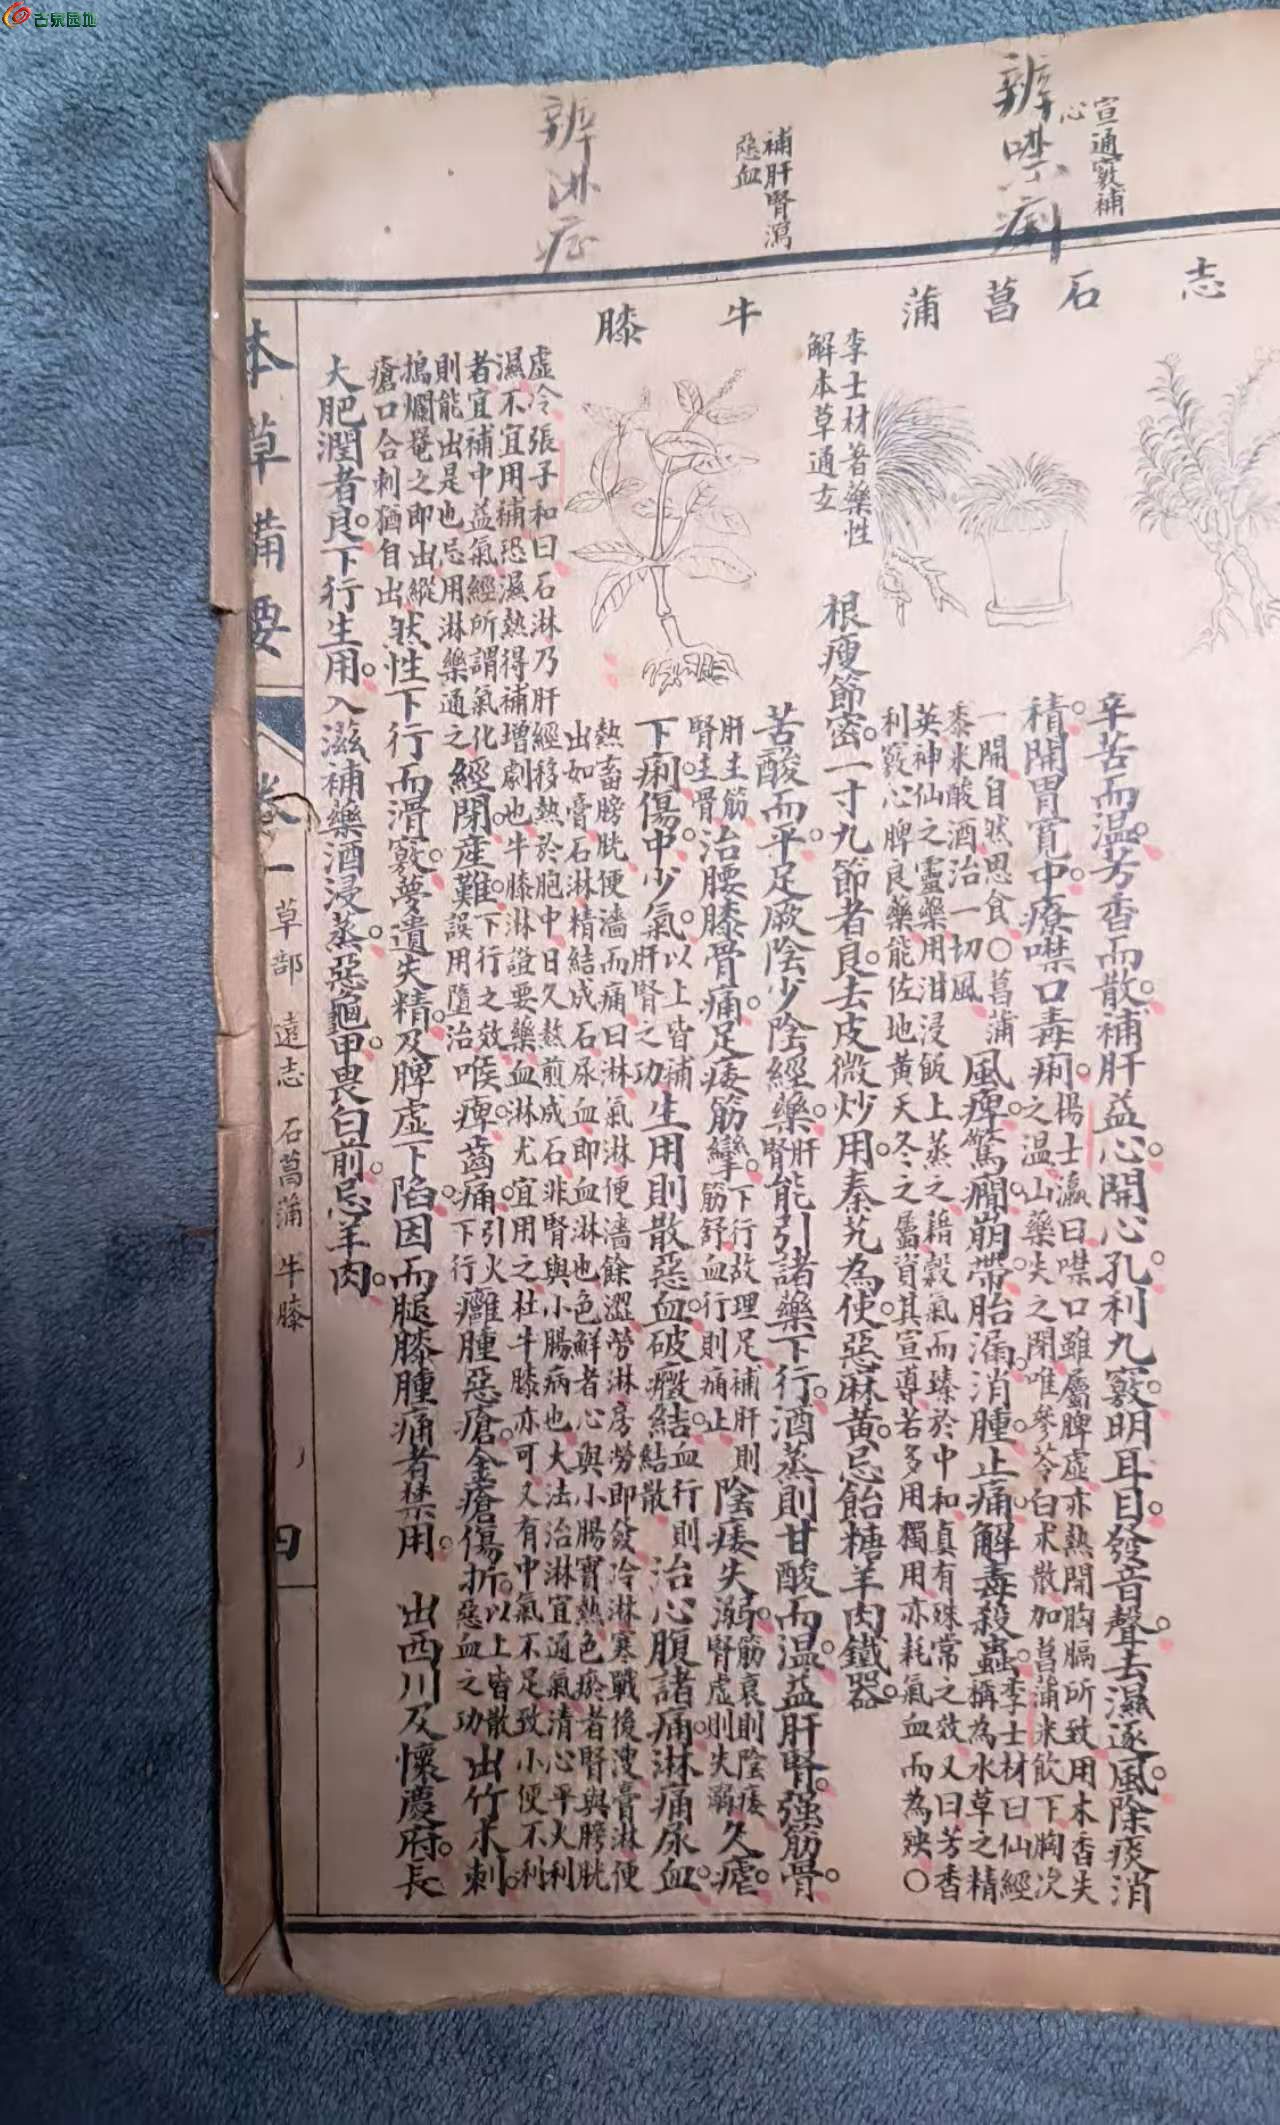 古泉园地
宣通竅補
心
辨噤口痢
補肝腎瀉
惡血
辨淋症
志
石菖蒲
牛膝
辛苦而溫。芳香而散。補肝益心。開心孔。利九竅。明耳目。發音聲。去濕逐風。除痰消
積。開胃寬中。療噤口毒痢。
楊士瀛曰噤口雖屬脾虛亦熱閉胸膈所致用木香失
之溫山藥失之閉唯參苓白朮散加菖蒲米飲下胸次
一開自然思食〇菖蒲
黍米酸酒治一切風
風痺驚癇。崩帶胎漏。消腫止痛。解毒殺蟲。
李士材曰仙經
稱為水草之精
英神仙之靈藥用泔浸飯上蒸之藉穀氣而臻於中和真有殊常之效又曰芳香
利竅心脾良藥能佐地黃天冬之屬資其宣導若多用獨用亦耗氣血而為殃〇
李士材著藥性
解本草通玄
根瘦節密。一寸九節者良。去皮微炒用。秦艽為使。惡麻黃。忌飴糖羊肉鐵器。
苦酸而平。足厥陰少陰經藥。
肝
腎
能引諸藥下行。酒蒸則甘酸而溫。益肝腎。強筋骨。
肝主筋
腎主骨
治腰膝骨痛。足痿筋攣。
下行故理足補肝則
筋舒血行則痛止
陰痿失溺。
筋衰則陰痿
腎虛則失溺
久瘧。
下痢。傷中少氣。
以上皆補
肝腎之功
生用則散惡血。破癥結。
血行則
結散
治心腹諸痛。淋痛尿血。
熱畜膀胱便濇而痛曰淋氣淋便濇餘澀勞淋房勞即發冷淋寒戰後溲膏淋便
出如膏石淋精結成石尿血即血淋也色鮮者心與小腸實熱色瘀者腎與膀胱
虛冷張子和曰石淋乃肝經移熱於胞中日久熬煎成石非腎與小腸病也大法治淋宜通氣清心平火利
濕不宜用補恐濕熱得補增劇也牛膝淋證要藥血淋尤宜用之杜牛膝亦可又有中氣不足致小便不利
者宜補中益氣經所謂氣化
則能出是也忌用淋藥通之
經閉產難。
下行之效
誤用墮治
喉痺齒痛。
引火
下行
癰腫惡瘡。金瘡傷折。
以上皆散
惡血之功
出竹木刺。
搗爛罨之即出縱
瘡口合刺猶自出
然性下行而滑竅。夢遺失精。及脾虛下陷因而腿膝腫痛者禁用。出西川及懷慶府。長
大肥潤者良。下行生用。入滋補藥酒浸蒸。惡龜甲。畏白前。忌羊肉。
本草備要
卷一 草部 遠志 石菖蒲 牛膝
四